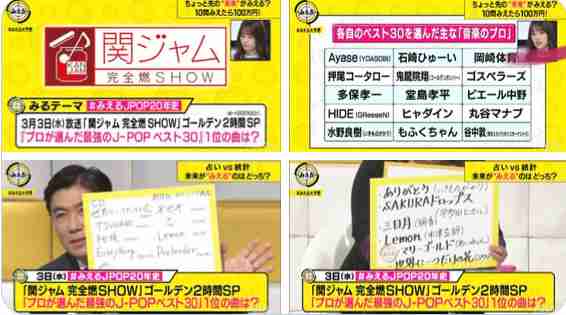 ちょっと先の"未来"がみえる?
10問みえたら100万円!
関ジャム
完全燃SHOW
みるテーマ #みえるJPOP20年史
3月3日(水)放送「関ジャム 完全燃SHOW」ゴールデン2時間SP
「プロが選んだ最強のJ-POP ベスト30」1位の曲は?
ちょっと先の"未来"がみえる?
10問みえたら100万円!
各自のベスト30を選んだ主な「音楽のプロ」
Ayase(YOASOBI) 石崎ひゅーい 岡崎体育
押尾コータロー 鬼龍院翔 ゴスペラーズ
多保孝一 堂島孝平 ピエール中野
HIDE(GReeeeN) ヒャダイン 丸谷マナブ
水野良樹 もふくちゃん 谷中敦
占い vs 統計
未来が"みえる"のはどっち?
CD
TSUNAMI
Lemon
Everything
Pretender
3日(水) #みえるJPOP20年史
「関ジャム 完全燃SHOW」ゴールデン2時間SP
「プロが選んだ最強のJ-POPベスト30」1位の曲は?
占い vs 統計
未来が"みえる"のはどっち?
ありがとう
SAKURAドロップス
三日月
Lemon(米津玄師)
マリーゴールド(あいみょん)
世界に一つだけの花
3日(水) #みえるJPOP20年史
「関ジャム 完全燃SHOW」ゴールデン2時間SP
「プロが選んだ最強のJ-POPベスト30」1位の曲は?